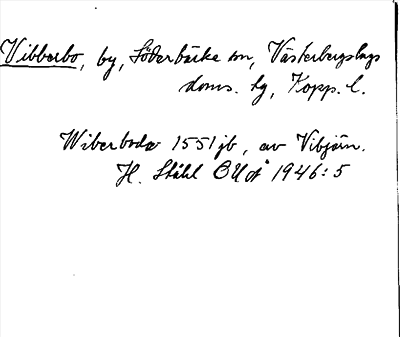 Vibberbo, by, Söderbärke sn, Västerbergslags
doms. hg, Kopp. l.
Wiberboda 1551 jb, av Vibjörn.
H. Ståhl OUÅ 1946: 5